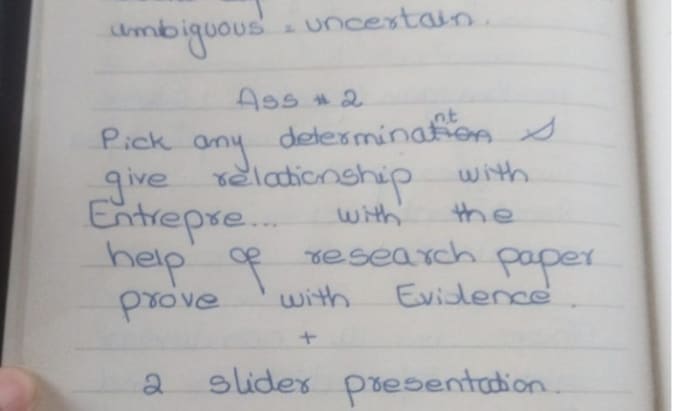 ambiguous = uncertain.
Ass # 2
Pick any determinant &
give relationship with
Entrepre... with the
help of research paper
prove with Evidence.
+
2 slider presentation.